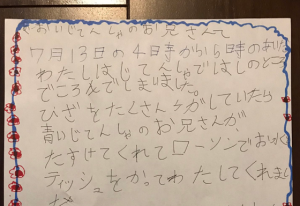 おいじてんしゃのお兄さんへ
7月13日の4時から5時のあいだ
わたしはじてんしゃではしのところ
でころんでしまいました。
ひざをたくさんけがしていたら
青いじてんしゃのお兄さんが、
たすけてくれてローソンでおみず
ティッシュをかってわたしてくれまし